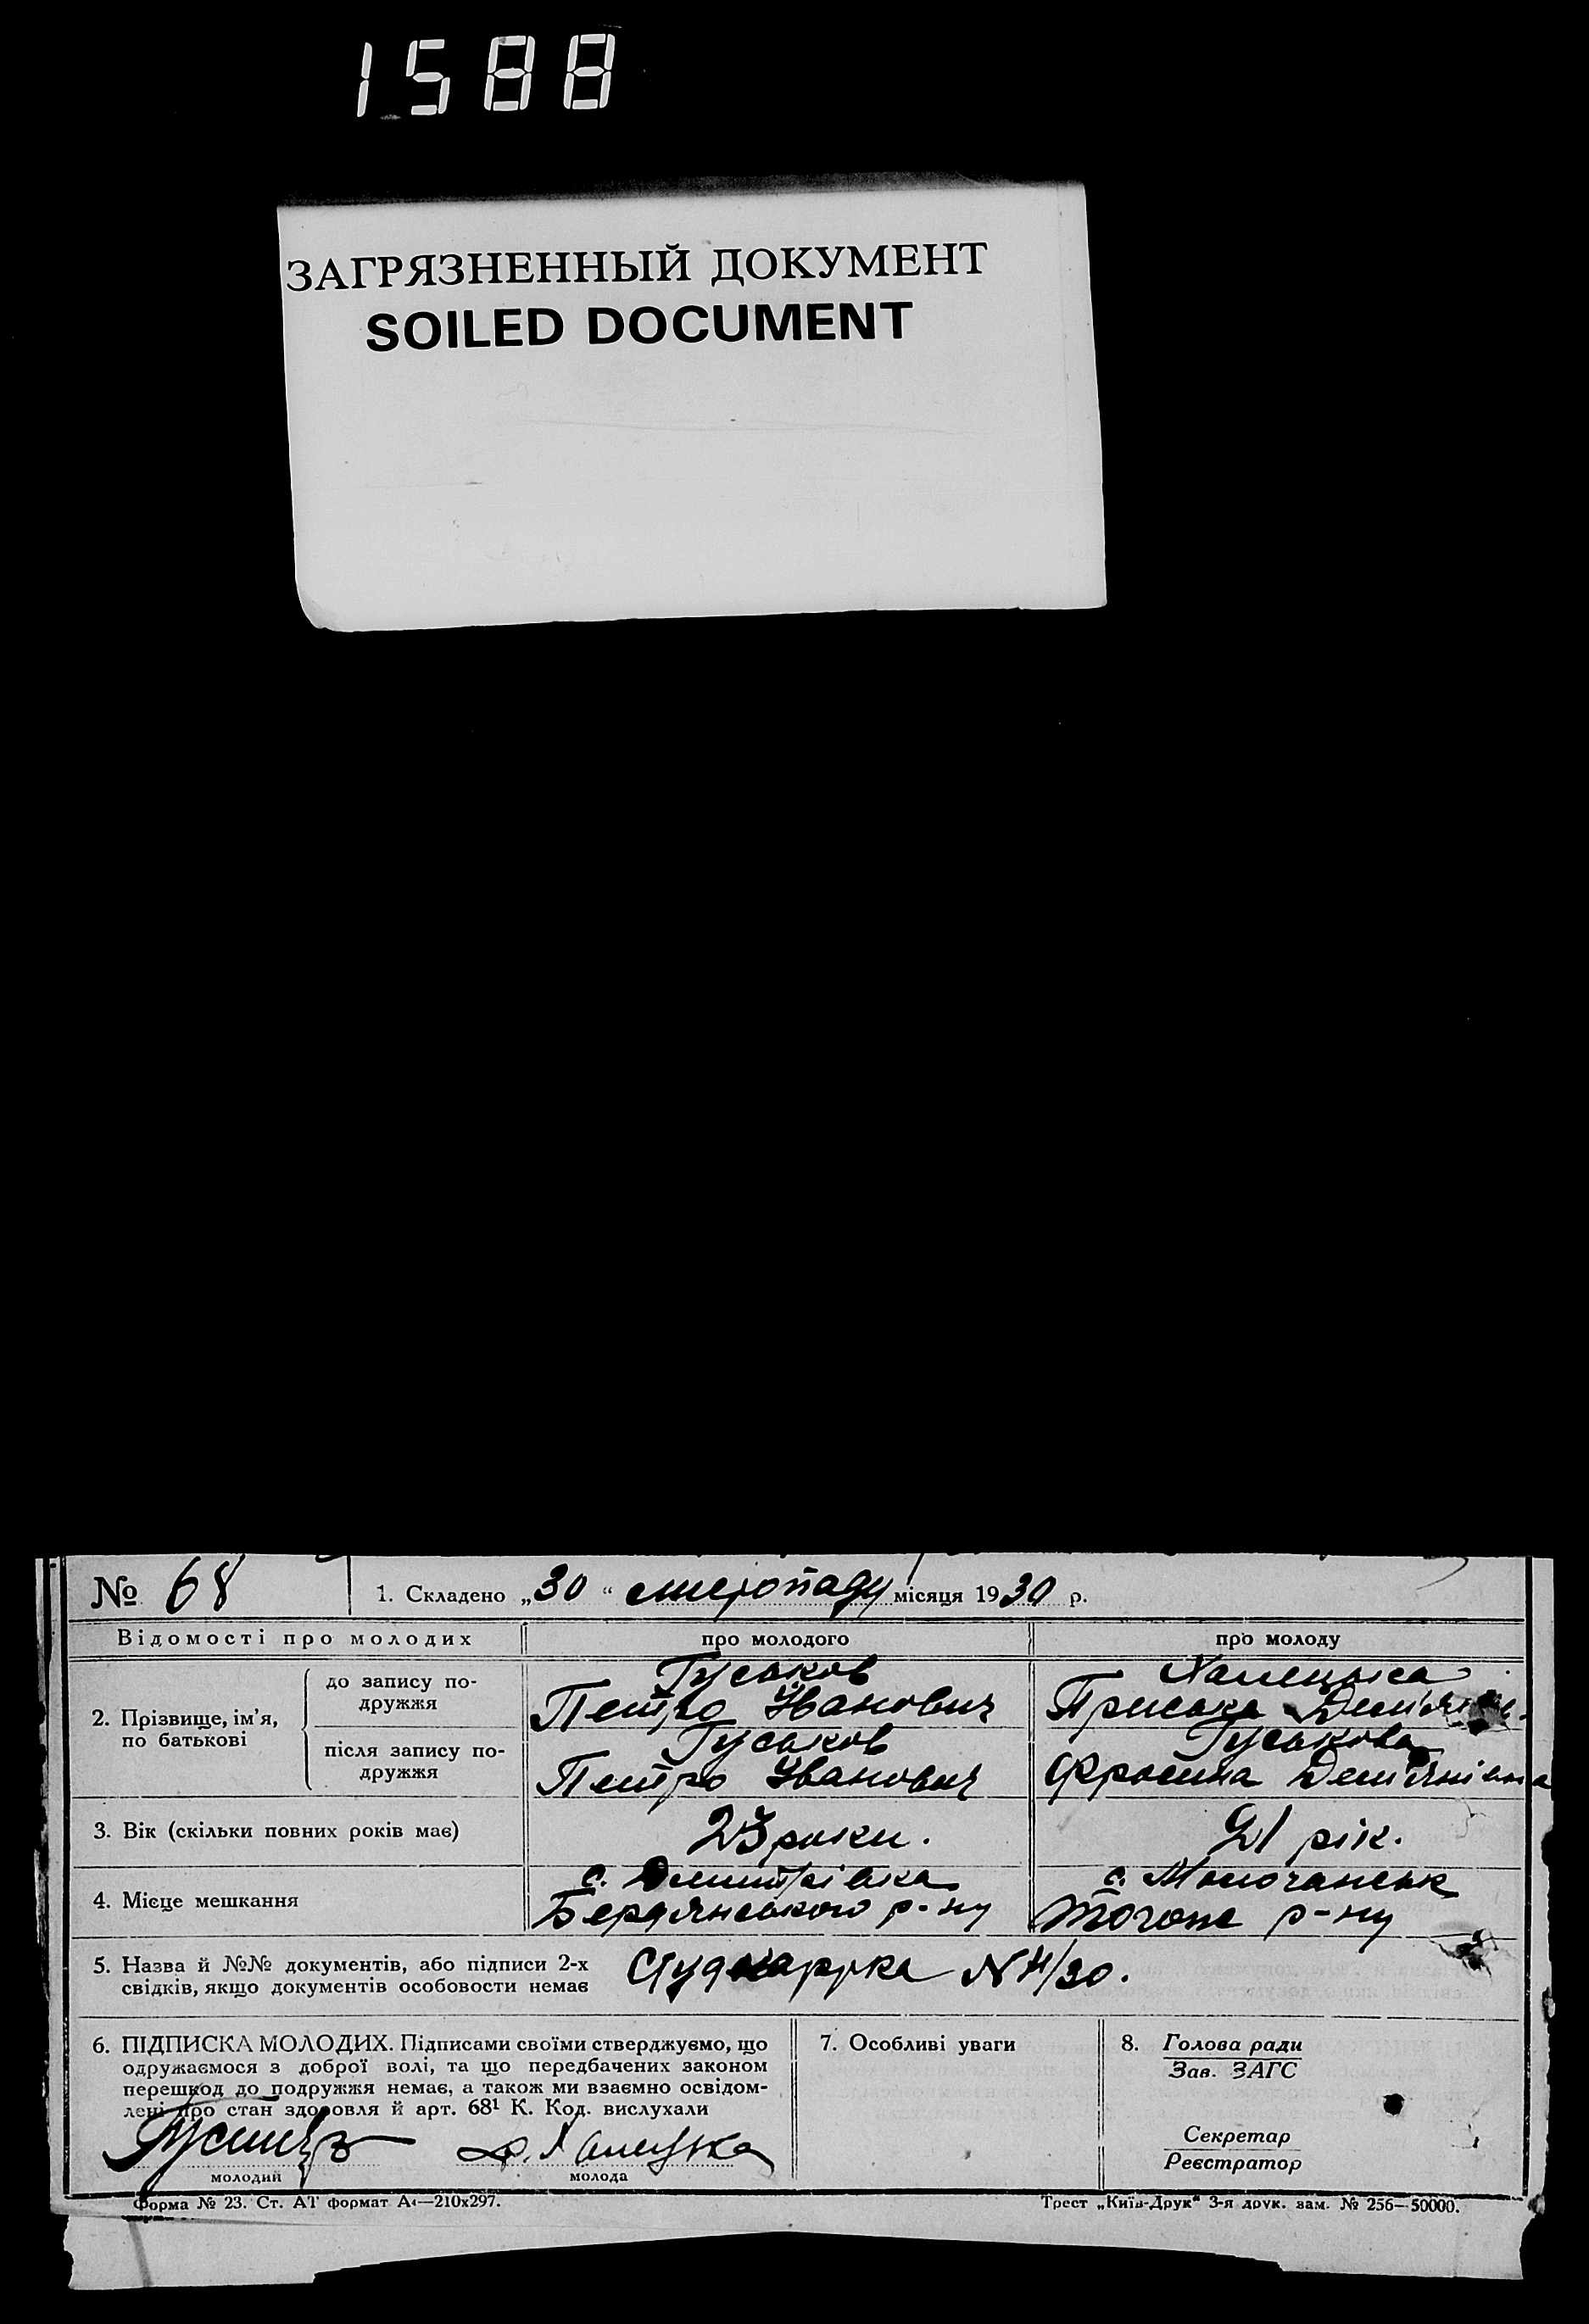 1588
ЗАГРЯЗНЕННЫЙ ДОКУМЕНТ
SOILED DOCUMENT
№ 68
1. Складено „30“ листопаду місяця 1930 р.
Відомості про молодих
про молодого
про молоду
2. Прізвище, ім'я, по батькові
до запису по-
дружжя
Гуськов
Петро Іванович
Приська
після запису по-
дружжя
Гуськов
Петро Іванович
Гуськова
Фросина Дем'янівна
3. Вік (скільки повних років має)
23 роки.
21 рік.
4. Місце мешкання
с. Дмитрівка
Бердянського р-ну
с. Молочанськ
р-ну
5. Назва й №№ документів, або підписи 2-х
свідків, якщо документів особовости немає
6. ПІДПИСКА МОЛОДИХ. Підписами своїми стверджуємо, що
одружаємося з доброї волі, та що передбачених законом
перешкод до подружжя немає, а також ми взаємно освідом-
лені про стан здоровля й арт. 68¹ К. Код. вислухали
молодий
молода
7. Особливі уваги
8. Голова ради
Зав. ЗАГС
Секретар
Реєстратор
Форма № 23. Ст. АТ формат А4—210х297.
Трест „Київ-Друк“ 3-я друк. зам. № 256—50000.